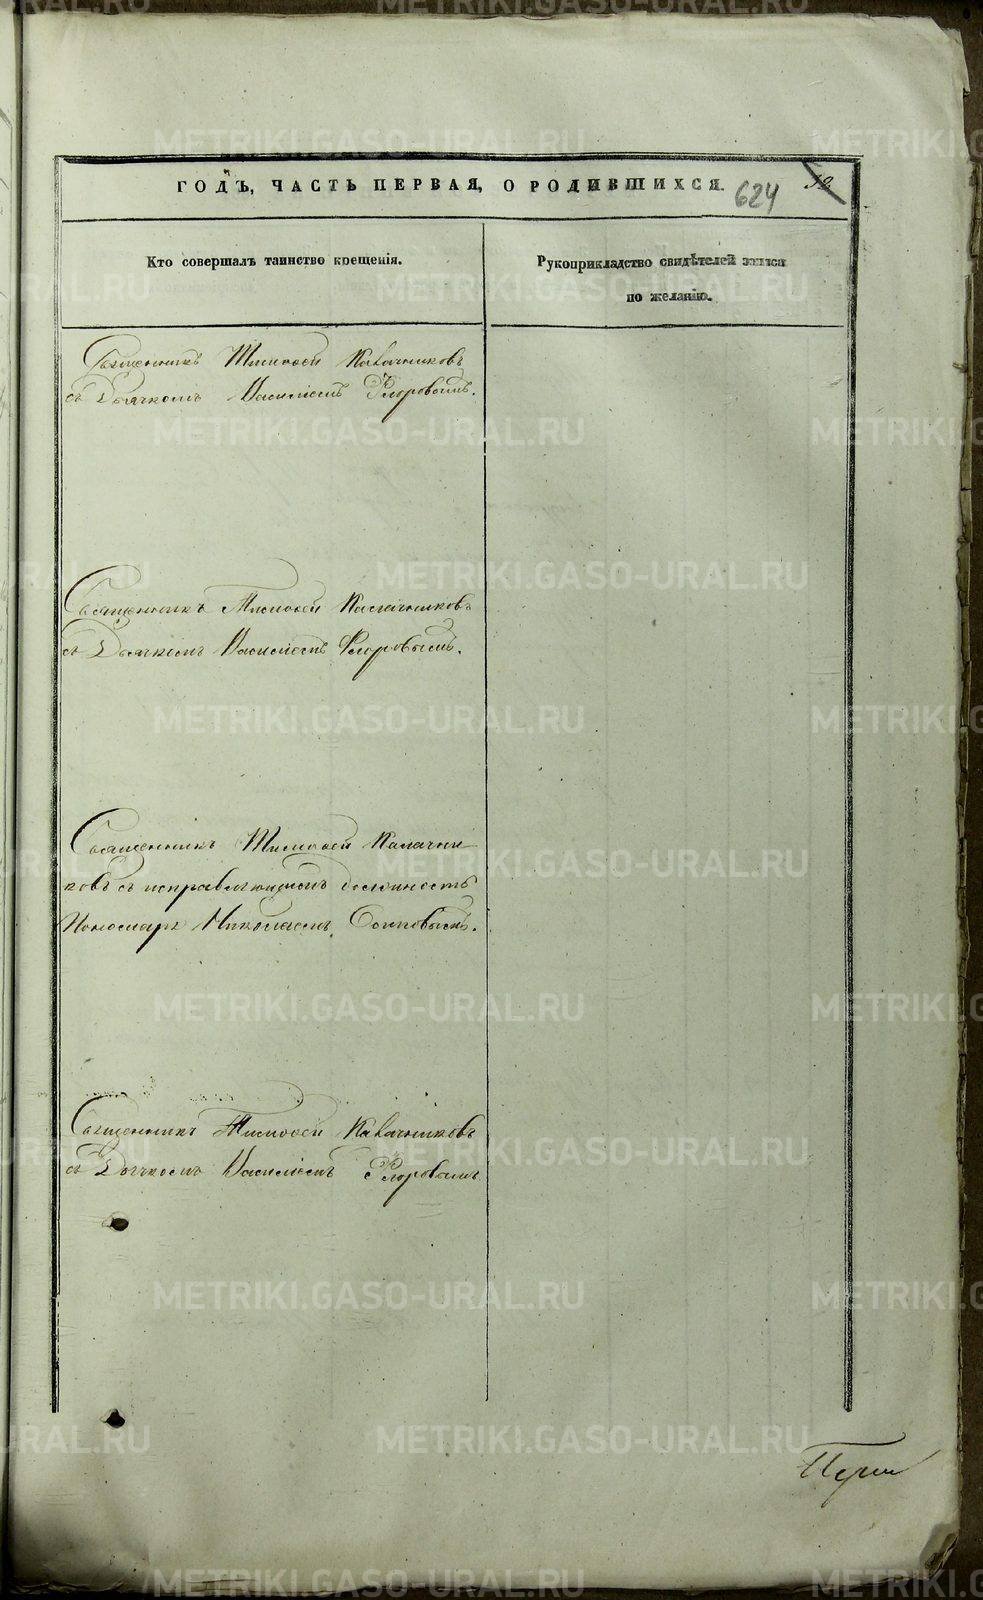 ГОДЪ, ЧАСТЬ ПЕРВАЯ, О РОДИВШИХСЯ.
624
Кто совершалъ таинство крещенія.
Рукоприкладство свидѣтелей записи
по желанію.
Священникъ Тимофей Калачниковъ
съ Дьячкомъ Василіемъ Флоровымъ.
Священникъ Тимофей Калачниковъ
съ Дьячкомъ Василіемъ Флоровымъ.
Священникъ Тимофей Калачни-
ковъ съ исправляющимъ должность
Пономаря Николаемъ
Священникъ Тимофей Калачниковъ
съ Дьячкомъ Василіемъ Флоровымъ
METRIKI.GASO-URAL.RU